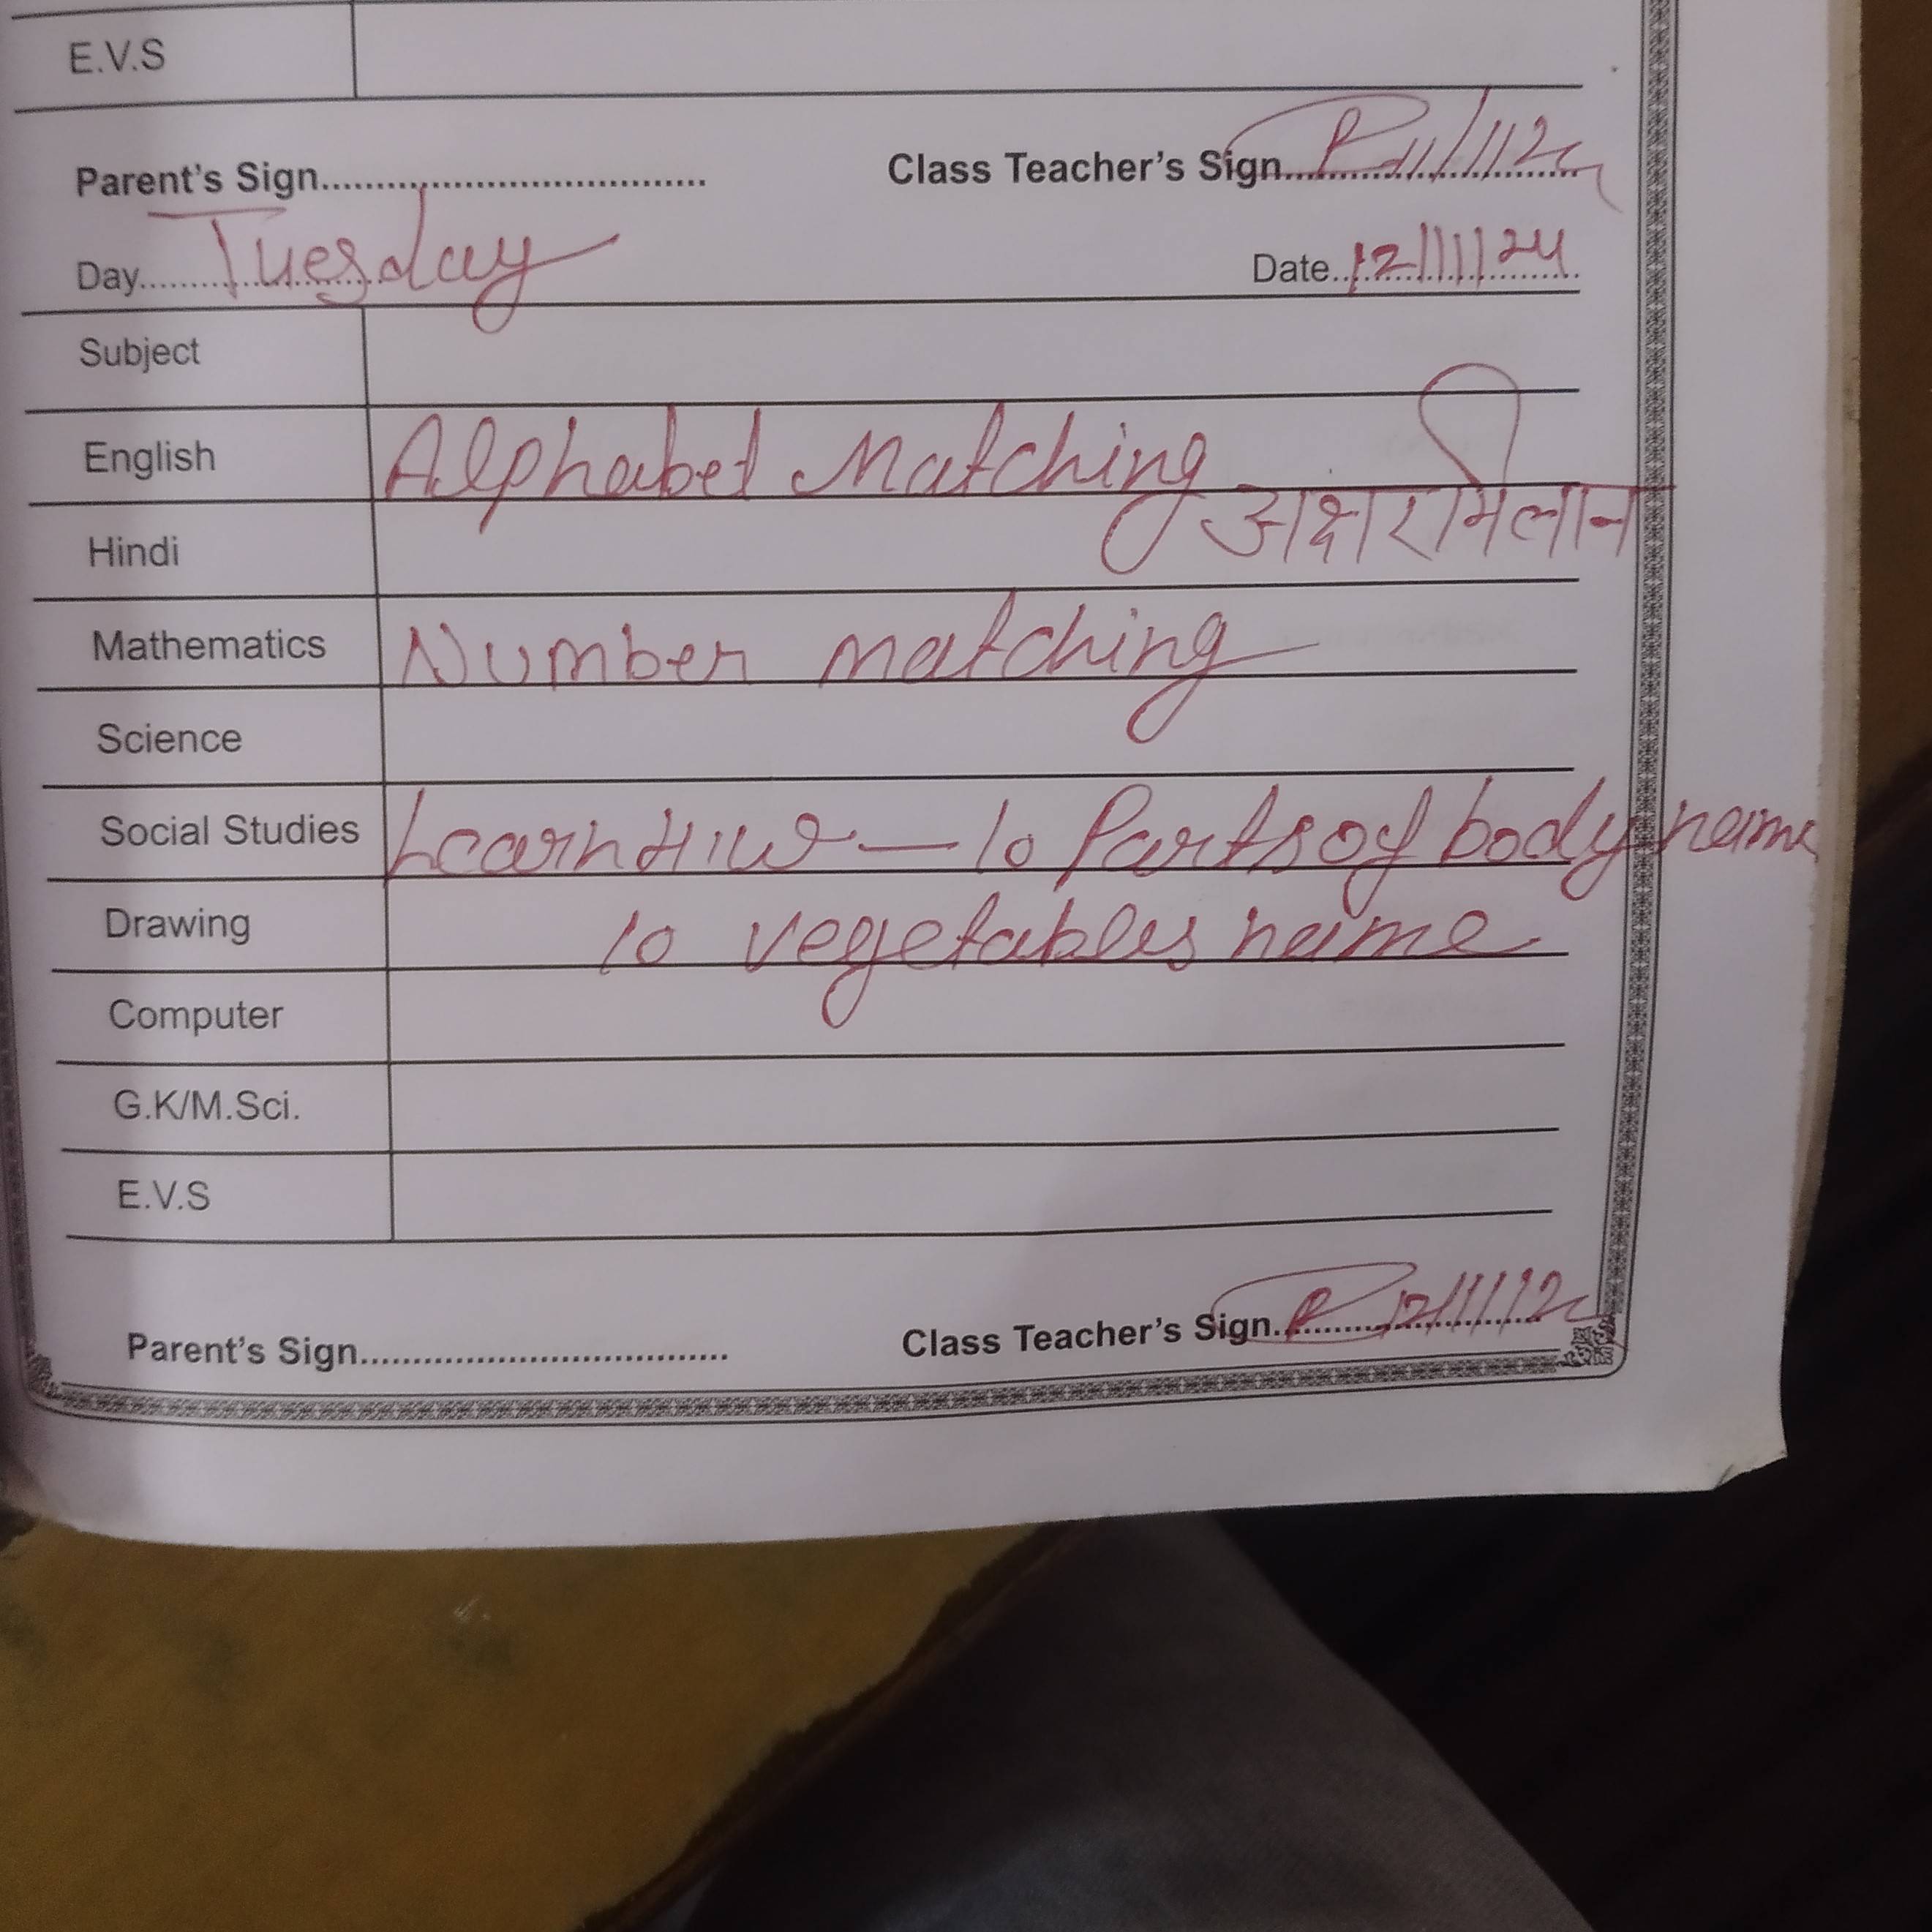 E.V.S
Parent's Sign.................................. Class Teacher's Sign 11/11/24
Day Tuesday Date 12/11/24
Subject
English Alphabet Matching
Hindi अक्षर मिलान
Mathematics Number matching
Science
Social Studies Learn H/W — 10 Parts of body name
Drawing 10 vegetables name
Computer
G.K/M.Sci.
E.V.S
Parent's Sign.................................. Class Teacher's Sign 12/11/24